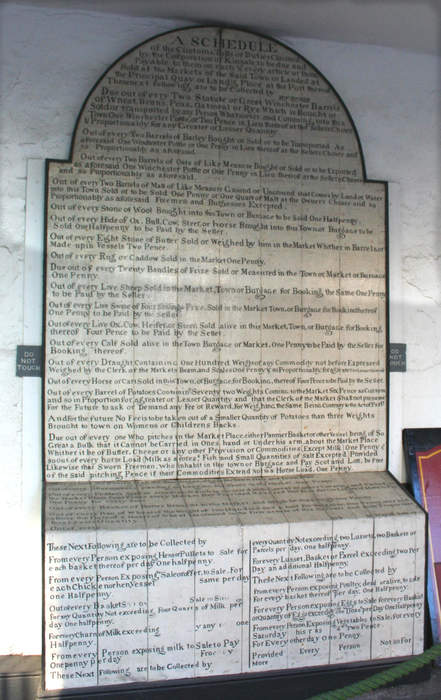 A SCHEDULE
of the Customs Tolls or Duties Claimed
by the Corporation of Kinsale to be due and
Payable to them on each & every article or thing
Sold at the Markets of the said Town or Landed at
the Principal Quay or Lands Place, at the Port thereof
Thence as following are to be Collected by
Due out of every Two Statute or Great Winchester Barrels
of Wheat, Beans, Peas, Oatmeal or Rye Which is Bought or
Sold or transported by any Person Whatsoever and Coming into this
Town One Winchester Pottle or Two Pence in Lieu thereof at the Sellers Choice
& Proportionably for any Greater or Lesser Quantity.
Out of every Two Barrels of Barley Bought or Sold or to be Transported As
aforesaid One Winchester Pottle or One Penny in Lieu thereof at the Sellers Choice and
so Proportionably as aforesaid.
Out of every Two Barrels of Oats of Like Measure Bought or Sold or to be Exported
as aforesaid One Winchester Pottle or One Penny in Lieu thereof at the Sellers Choice
and so Proportionably as aforesaid.
Out of every Two Barrels of Malt of Like Measure Ground or Unground that Comes by Land or Water
into this Town to Sold or to be Sold One Penny or One Quart of Malt at the Owners Choise and so
Proportionably as aforesaid Freemen and Burgesses Excepted
Out of every Stone of Wool Bought into this Town or Burgage to be Sold One Halfpenny
Out of every Hide of Ox, Bull, Cow, Steer, or Horse Brought into this Town or Burgage to be
Sold One Halfpenny to be Paid by the Seller.
Out of every Eight Stone of Butter Sold or Weighed by him in the Market Whither in Barrels or
Made upin Vessels Two Pence.
Out of every Rug or Caddow Sold in the Market One Penny.
Due out of every Twenty Bandles of Frize Sold or Measured in the Town or Market or Burgage
One Penny.
Out of every Live Sheep Sold in the Market, Town or Burgage for Booking the Same One Penny
to be Paid by the Seller.
Out of every Live Swine of Four Shillings Price, Sold in the Market Town, or Burgage for Booking thereof
One Penny to be Paid by the Seller
Out of every Live Ox, Cow, Heifer or Steer Sold alive in this Market, Town, or Burgage, for Booking
thereof Four Pence to be Paid by the Seller.
Out of every Calf Sold alive in the Town Burgage or Market, One Penny to be Paid by the Seller for
Booking thereof.
Out of every Draught Containing One Hundred Weight of any Commodity not before Expressed
Weighed by the Clerk of the Markets Beam and Scales One Penny & so Proportionably, for
Out of every Horse or Cart Sold in this Town, or Burgage for Booking thereof Four Pence to be Paid by the Seller.
Out of every Barrel of Potatoes Containing Seventy two Weights Coming to the Market Six Pence
and so in Proportion for a Greater or Lesser Quantity and that the Clerk of the Market Shall not presume
For the Future to ask or Demand any Fee or Reward, for Weighing the Same Being Contrary to the
And for the Future No Fee is to be taken out of a Smaller Quantity of Potatoes than three Weights
Brought to town on Womens or Childrens Backs
Due out of every One Who pitches in the Market Place either Pannier Basket or other Vessel being of So
Great a Bulk that it Cannot be Carried in Ones hand or Under his arm, about the Market Place
Whither it be of Butter, Cheese or any other Provision or Commodities, Except Milk One Penny &
so out of every horse Load (Milk as afores.d Fish and Small Quantities of Salt Excepted) Provided
Likewise that Sworn Freemen, who Inhabit in the Town or Burgage and Pay Scot and Lott, be Free
of the Said pitching Pence if their Commodities Extend not to a Horse Load, One Penny.
DO NOT TOUCH
DO NOT TOUCH
These Next Following are to be Collected by
From every Person exposing Hens or Pullets to Sale for
each basket thereof per day One halfpenny.
From every Person Exposing Sale for
each Chicken or hen Vessel same per day
one Halfpenny
Out of every Basket Sale
For any Quantity Not exceeding Four Quarts of Milk per
day one halfpenny.
For every Churn of Milk exceeding any one
Halfpenny.
From every Person exposing milk to Sale to Pay
One penny per day
These Next Following are to be Collected by
Every Quantity Not exceeding two Baskets or
Parcels per day, One halfpenny.
For every Basket or Parcel exceeding two Per
Day an additional Halfpenny.
These Next Following are to be Collected by
From every Person exposing Poultry, dead or alive, to Sale
For every basket thereof Per day. One Halfpenny.
For every Person exposing Eggs to Sale for every Basket
From every Person exposing Vegetables to Sale, For every
Saturday Two Pence
For Every other day One Penny.
Provided Every Person Not in for
More